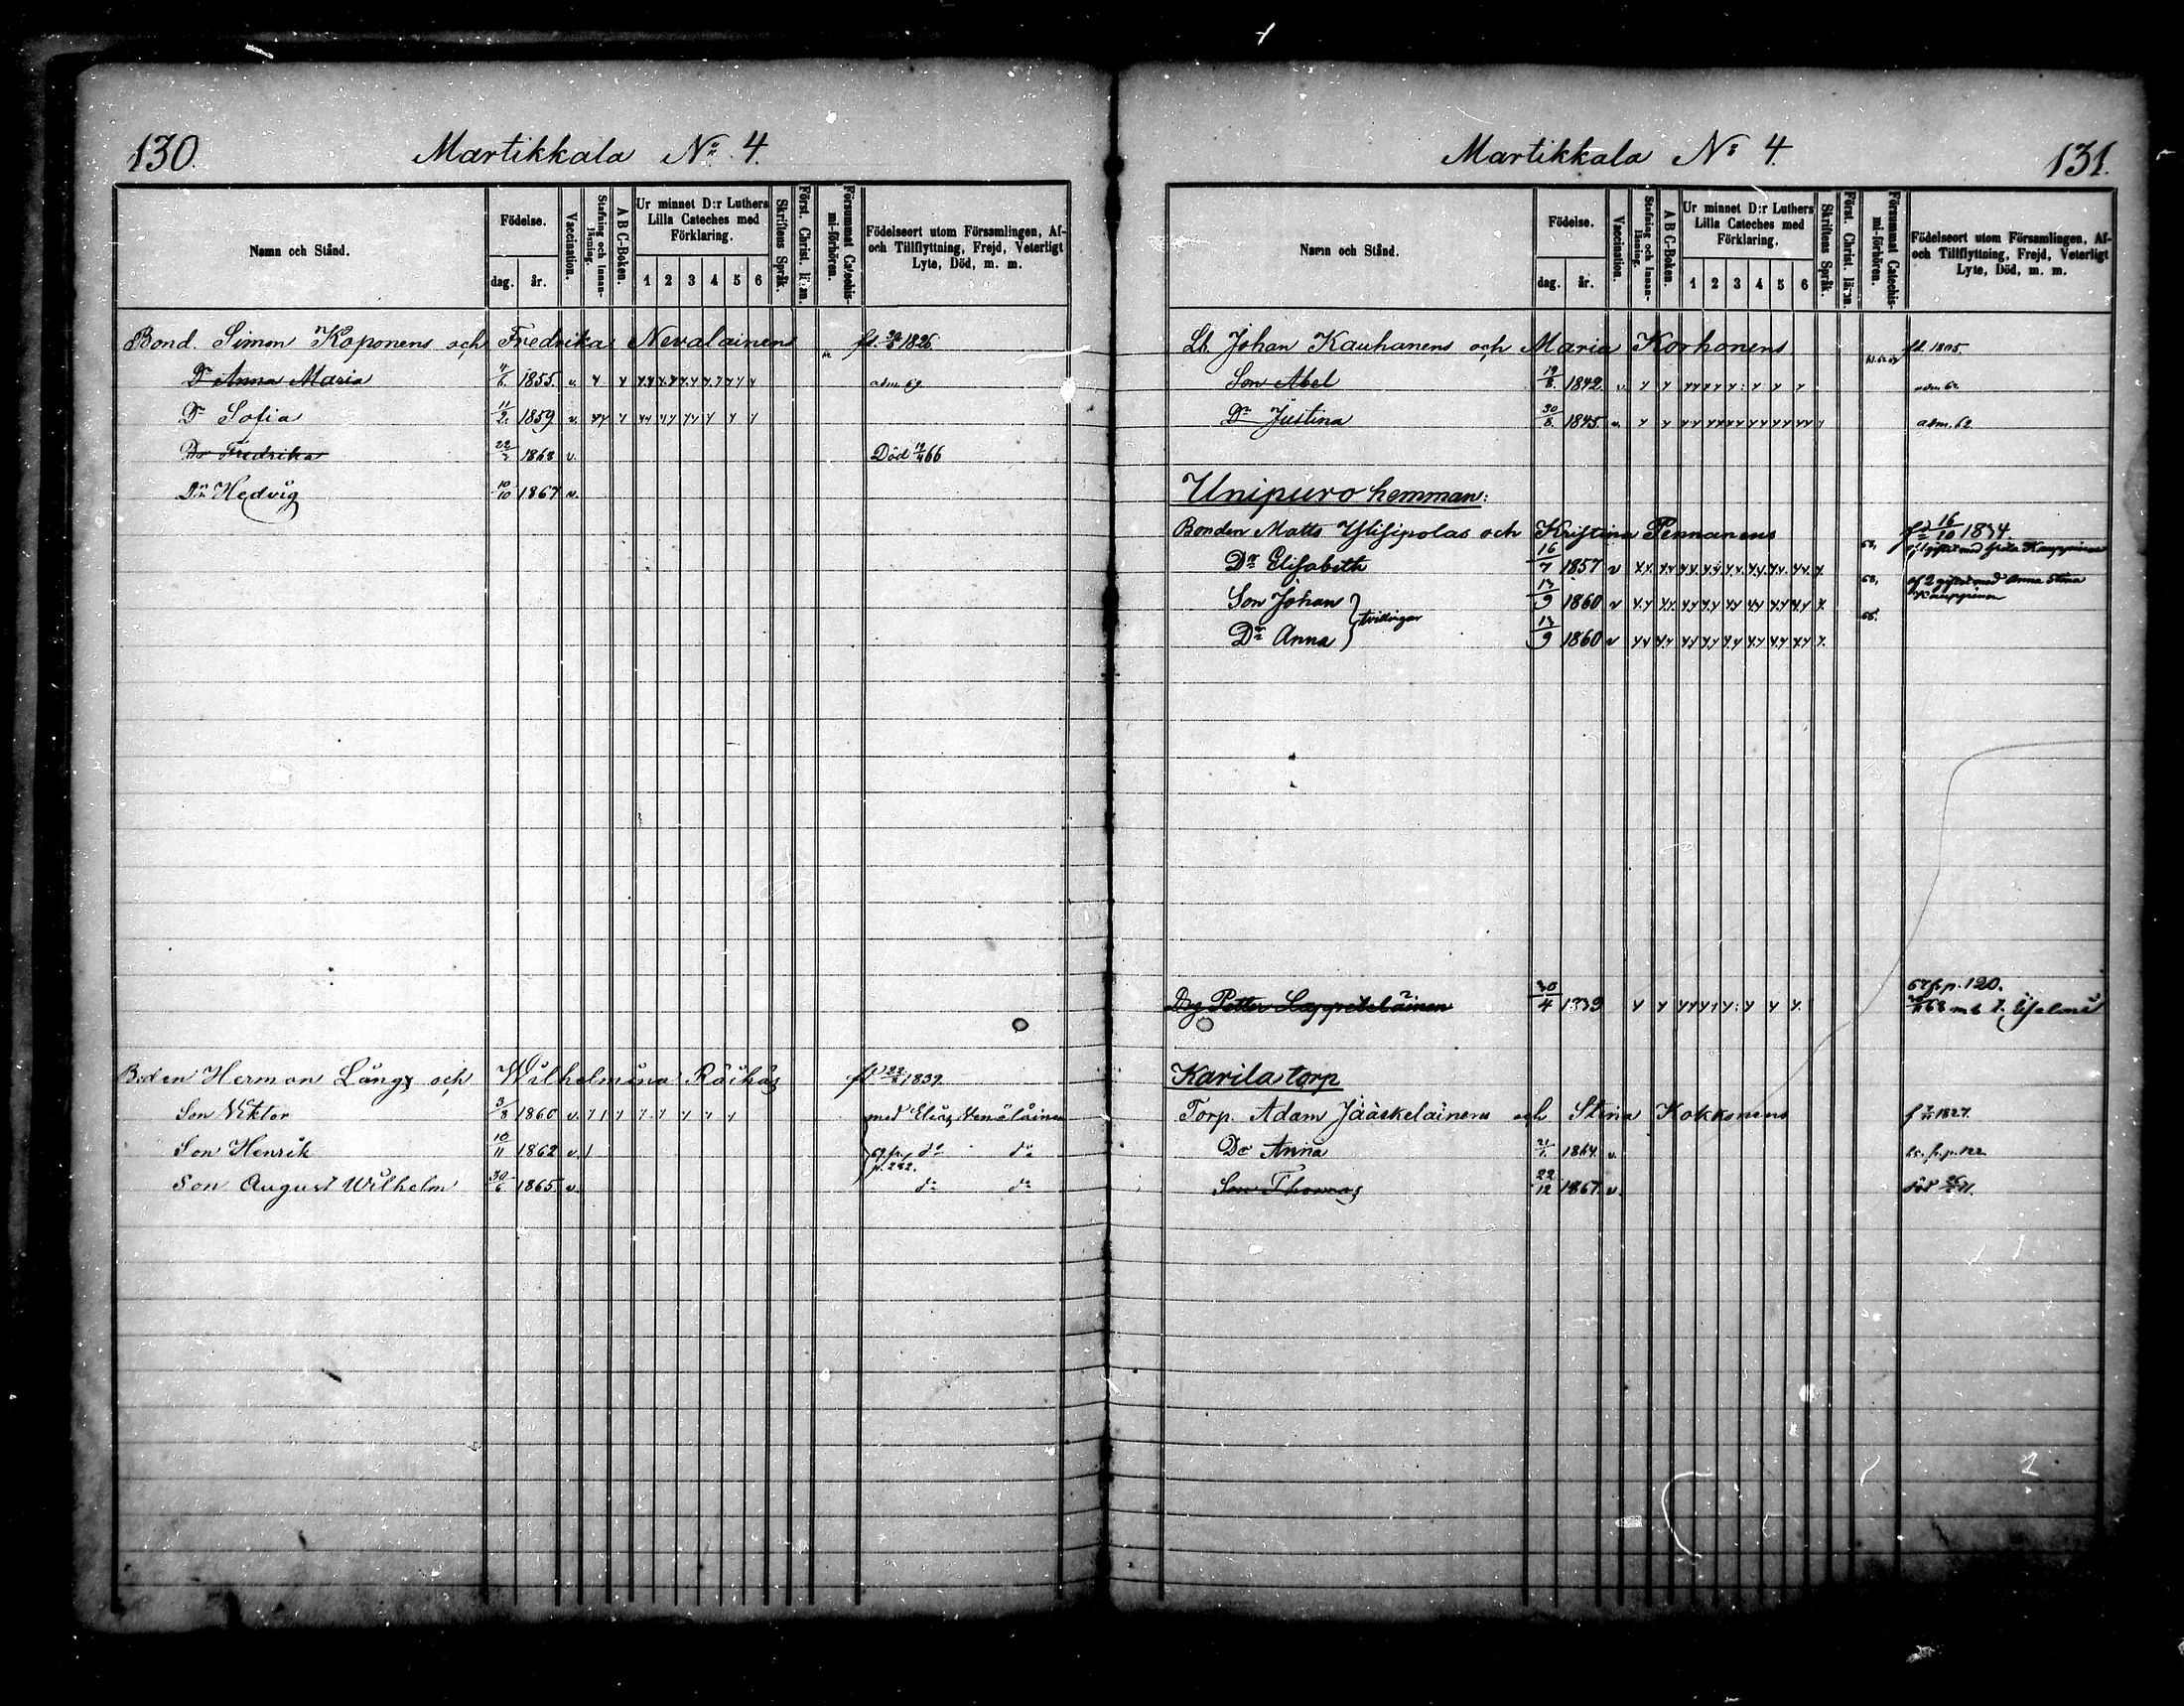 130.
Martikkala No 4.
Namn och Stånd.
Födelse.
dag. år.
Vaccination.
Stafning och Innanläsning.
A B C-Boken.
Ur minnet D:r Luthers Lilla Cateches med Förklaring.
1 2 3 4 5 6
Skriftens Språk.
Först. Christ. lä:n.
Försummat Catechismi-förhören.
Födelseort utom Församlingen, Af- och Tillflyttning, Frejd, Veterligt Lyte, Död, m. m.
Bond. Simon Koponens och Fredrika Nevalainens 1826
Dr Anna Maria 1855. v. adm. 69
Dr Sofia 11/2. 1859 v.
Dr Fredrika 1863 v. Död 66
Dr Hedvig 10/10 1867 v.
Bonden Herman Långs och Wilhelmina Röihäs 1839.
Son Viktor 3/8 1860 v. med Elias Venäläinen
Son Henrik 10/11 1862 v. do do
p. 242.
Son August Wilhelm 30/6 1865. v. do do
131.
Martikkala No 4.
Namn och Stånd.
Födelse.
dag. år.
Vaccination.
Stafning och Innanläsning.
A B C-Boken.
Ur minnet D:r Luthers Lilla Cateches med Förklaring.
1 2 3 4 5 6
Skriftens Språk.
Först. Christ. lä:n.
Försummat Catechismi-förhören.
Födelseort utom Församlingen, Af- och Tillflyttning, Frejd, Veterligt Lyte, Död, m. m.
Lb. Johan Kauhanens och Maria Korhonens fd. 1805.
Son Abel 19/8. 1842. v. adm 62
Dr Justina 30/8. 1845. v. adm. 62
Unipuro hemman:
Bonden Matts Ylisipolas och Kristina Pennanens fd 16/10 1834.
Dr Elisabeth 16/7 1857 v 68,
Son Johan 13/9 1860 v 68, af 2 giftet med Anna Stina Kauppinen
tvillingar
Dr Anna 13/9 1860 v
67 fr. p. 120.
Drg Petter Lappeteläinen 30/4 1839
Karila torp
Torp. Adam Jääskeläinens och Stina Kokkonens 1827.
Dr Anna 21/1. 1864. v. fr. p. 122
Son Thomas 22/12 1867. v. död